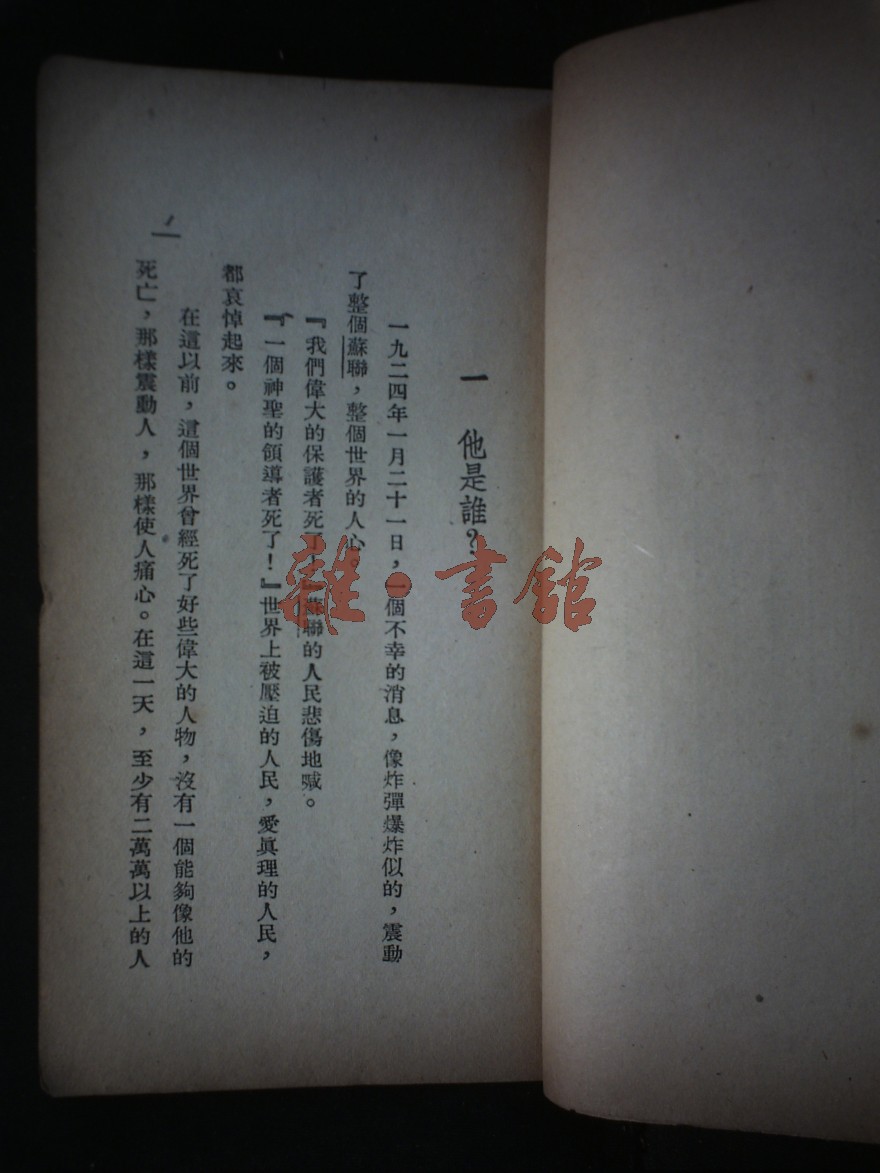 一　他是誰？
一九二四年一月二十一日，一個不幸的消息，像炸彈爆炸似的，震動
了整個蘇聯，整個世界的人心。
『我們偉大的保護者死了！』蘇聯的人民悲傷地喊。
『一個神聖的領導者死了！』世界上被壓迫的人民，愛眞理的人民，
都哀悼起來。
在這以前，這個世界曾經死了好些偉大的人物，沒有一個能夠像他的
死亡，那樣震動人，那樣使人痛心。在這一天，至少有二萬萬以上的人
雜·書館